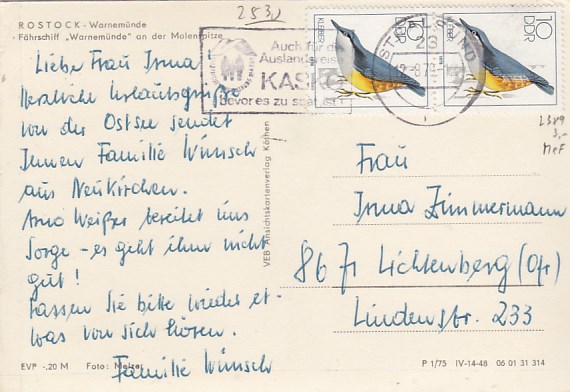 2530
ROSTOCK - Warnemünde
· Fährschiff „Warnemünde" an der Molenspitze
Liebe Frau Irma!
Herzliche Urlaubsgrüße
von der Ostsee sendet
Ihnen Familie Wünsch
aus Neukirchen.
Arno Weißer bereitet uns
Sorge - es geht ihm nicht
gut!
Lassen Sie bitte wieder et-
was von sich hören.
Familie Wünsch
EVP -,20 M Foto:
VEB Ansichtskartenverlag Köthen
Auch für die
Auslandsreise
KASKO
bevor es zu spät ist!
KLEIBER
10
DDR
KLEIBER
10
DDR
2389
3,-
MeF
Frau
Irma Zimmermann
8671 Lichtenberg (Ofr)
Lindenstr. 233
P 1/75 IV-14-48 06 01 31 314